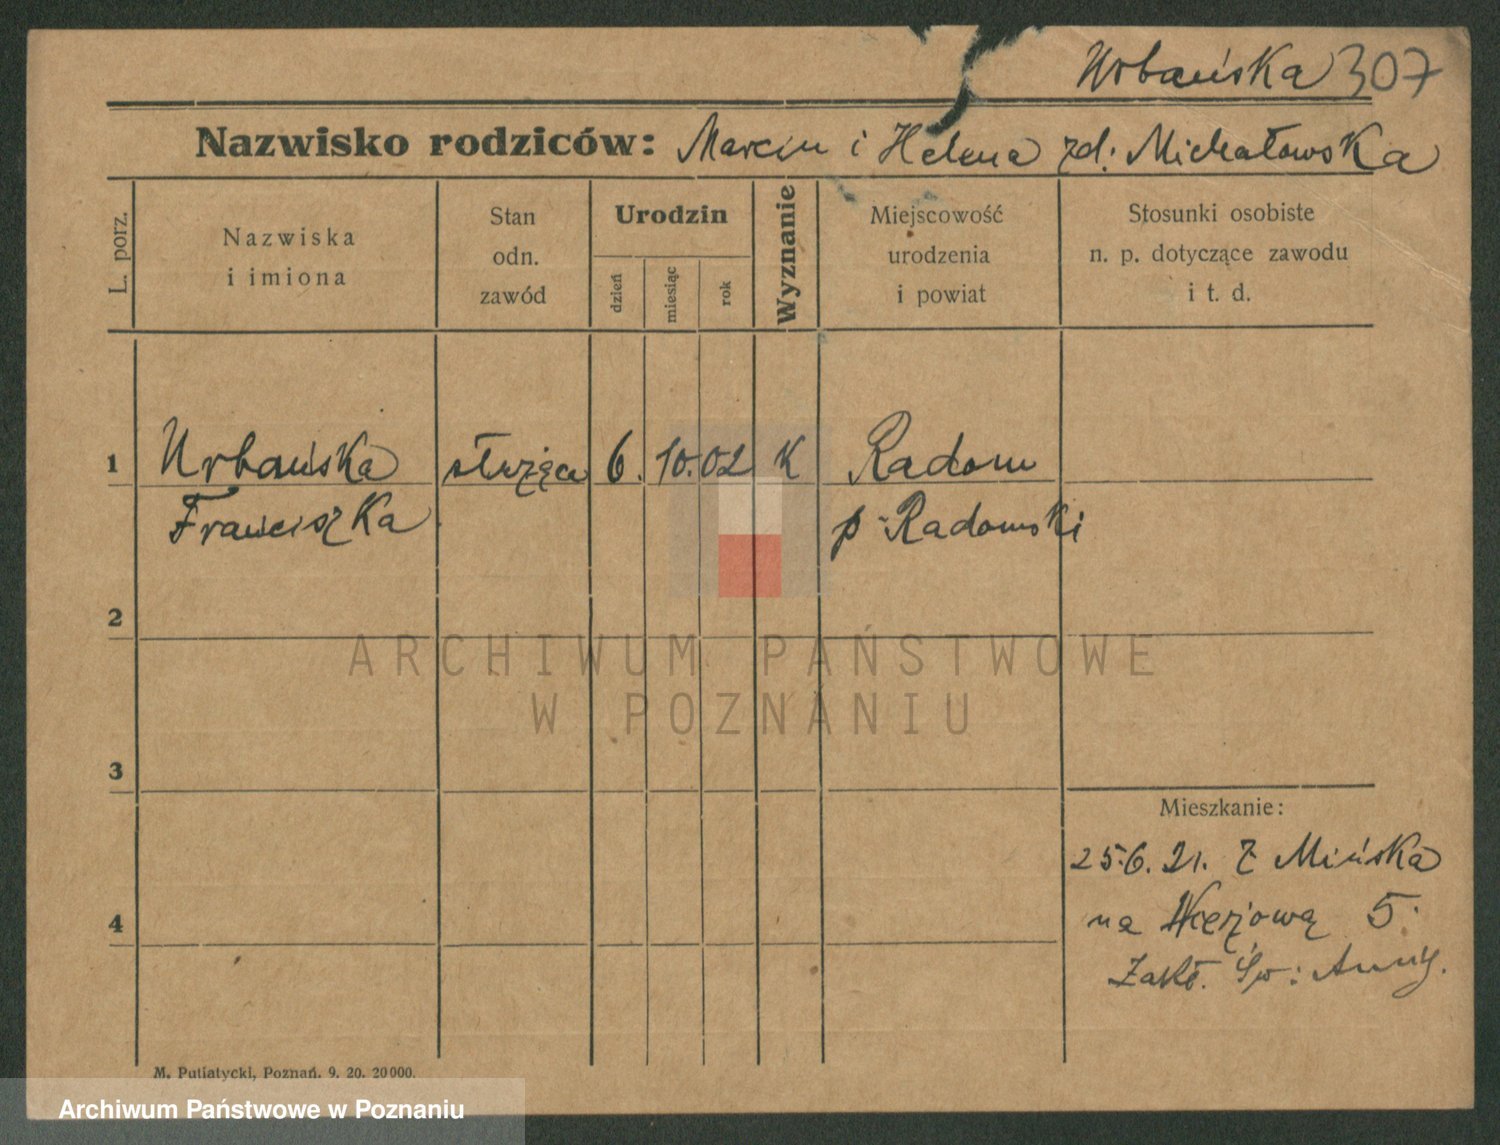 Urbańska 307
Nazwisko rodziców: Marcin i Helena zd: Michałowska
L. porz.
Nazwiska
i imiona
Stan
odn.
zawód
Urodzin
dzień
miesiąc
rok
Wyznanie
Miejscowość
urodzenia
i powiat
Stosunki osobiste
n. p. dotyczące zawodu
i t. d.
1 Urbańska służąca 6. 10. 02 K Radom
Franciszka p Radomski
2
ARCHIWUM PAŃSTWOWE
W POZNANIU
3
Mieszkanie:
25.6.21. Z Mińska
na 5.
4
Zakł. Św: Anny.
M. Putiatycki, Poznań. 9. 20. 20000.
Archiwum Państwowe w Poznaniu